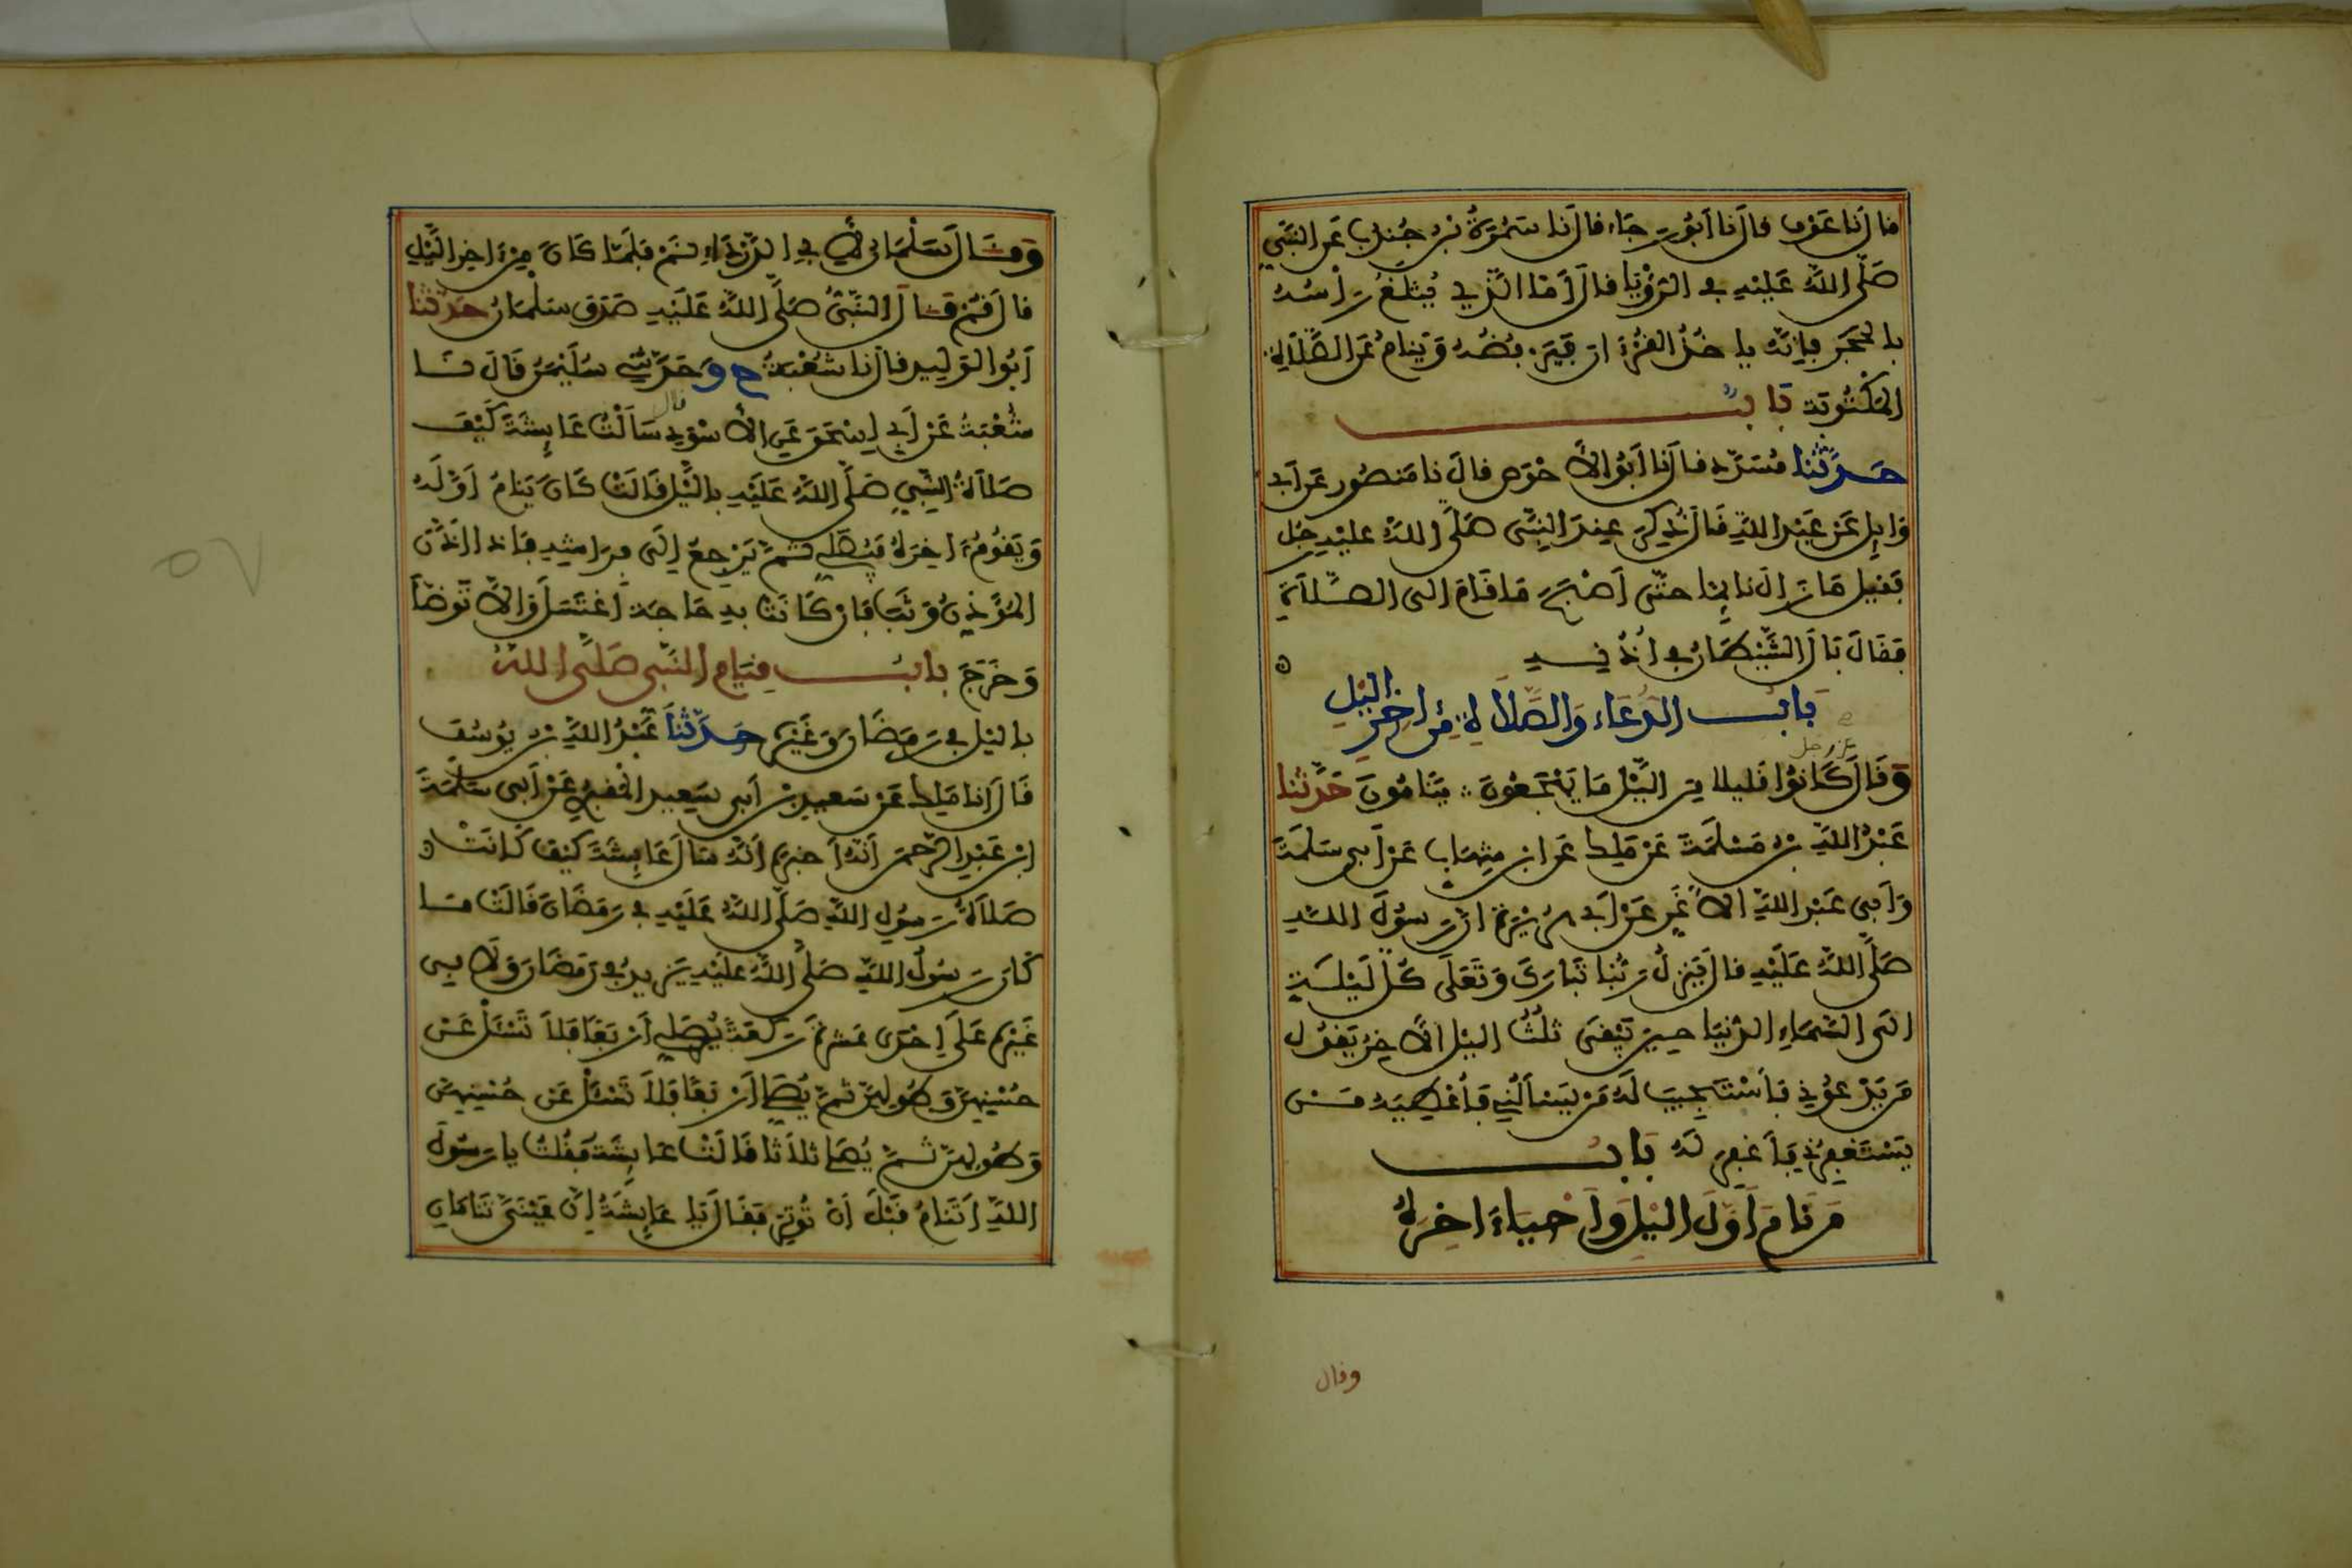 قال نا عوف قال نا أبو رجاء قال نا سمرة بن جندب عن النبي
صلى الله عليه في الرؤيا قال أما الذي يثلغ رأسه
بالحجر فإنه ياخذ القرءان فيرفضه وينام عن الصلاة
المكتوبة باب
حدثنا مسدد قال نا أبو الأحوص قال نا منصور عن أبي
وايل عن عبد الله قال ذكر عند النبي صلى الله عليه رجل
فقيل ما زال نايما حتى أصبح ما قام الى الصلاة
فقال بال الشيطان في أذنيه ه
باب الدعاء والصلاة من اخر اليل
عز وجل
وقال كانوا قليلا من اليل ما يهجعون ينامون حدثنا
عبد الله بن مسلمة عن ملك عن ابن شهاب عن أبي سلمة
وأبي عبد الله الأغر عن أبي هريرة أن رسول الله
صلى الله عليه قال ينزل ربنا تبارك وتعلى كل ليلة
الى السماء الدنيا حين يبقى ثلث اليل الآخر يقول
من يدعوني فأستجيب له من يسألني فأعطيه من
يستغفرني فأغفر له باب
من نام أول اليل وأحياء اخره
وقال
وقال سلمان لأبي الدرداء نم فلما كان من ءاخر اليل
قال قم قال النبي صلى الله عليه صدق سلمان حدثنا
أبو الوليد قال نا شعبة ح وحدثني سليمن قال نا
شعبة عن أبي إسحق عن الأسود قال سألت عايشة كيف
صلاة النبي صلى الله عليه باليل قالت كان ينام أوله
ويقوم ءاخره فيصلي ثم يرجع إلى فراشه فاذا أذن
المؤذن وثب فإن كانت به حاجة اغتسل وإلا توضأ
وخرج باب قيام النبي صلى الله
باليل في رمضان وغيره حدثنا عبد الله بن يوسف
قال انا ملك عن سعيد بن أبي سعيد المقبري عن أبي سلمة
ابن عبد الرحمن أنه أخبره أنه سال عايشة كيف كانت
صلاة رسول الله صلى الله عليه في رمضان قالت ما
كان رسول الله صلى الله عليه يزيد في رمضان ولا في
غيره على إحدى عشرة ركعة يصلي أربعا فلا تسئل عن
حسنهن وطولهن ثم يصلي أربعا فلا تسئل عن حسنهن
وطولهن ثم يصلي ثلاثا قالت عايشة فقلت يا رسول
الله أتنام قبل أن توتر فقال يا عايشة إن عيني تنامان